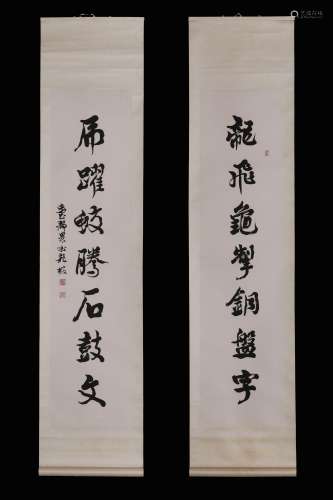 龍飛龜掣銅盤字
乕躍蛟騰石鼓文